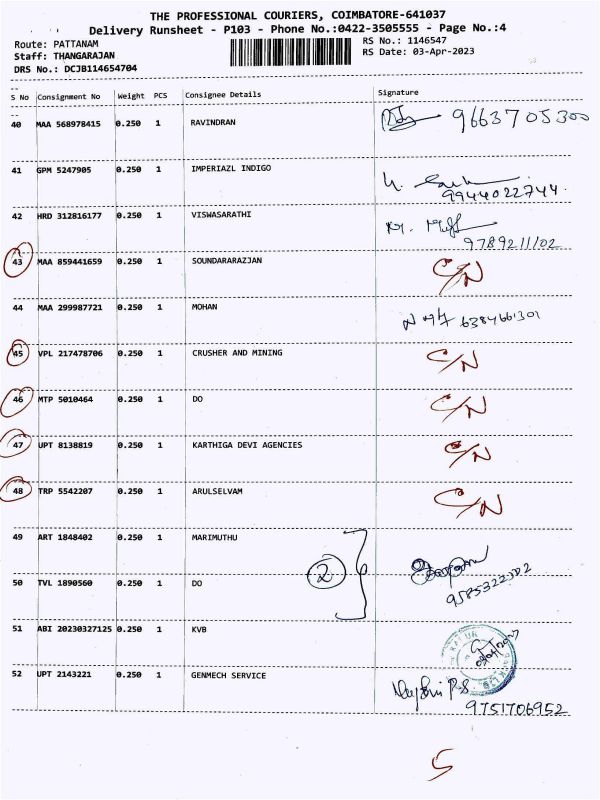 THE PROFESSIONAL COURIERS, COIMBATORE-641037
Delivery Runsheet - P103 - Phone No.:0422-3505555 - Page No.:4
Route: PATTANAM
RS No.: 1146547
Staff: THANGARAJAN
RS Date: 03-Apr-2023
DRS No.: DCJB114654704
S No Consignment No Weight PCS Consignee Details Signature
40 MAA 568978415 0.250 1 RAVINDRAN 9663705300
41 GPM 5247905 0.250 1 IMPERIAZL INDIGO
9944022744
42 HRD 312816177 0.250 1 VISWASARATHI
9789211102
43 MAA 859441659 0.250 1 SOUNDARARAZJAN C/N
44 MAA 299987721 0.250 1 MOHAN 6384661301
45 VPL 217478706 0.250 1 CRUSHER AND MINING C/N
46 MTP 5010464 0.250 1 DO C/N
47 UPT 8138819 0.250 1 KARTHIGA DEVI AGENCIES C/N
48 TRP 5542207 0.250 1 ARULSELVAM C/N
49 ART 1848402 0.250 1 MARIMUTHU
2
50 TVL 1890560 0.250 1 DO
51 ABI 20230327125 0.250 1 KVB
52 UPT 2143221 0.250 1 GENMECH SERVICE
9751706952
5